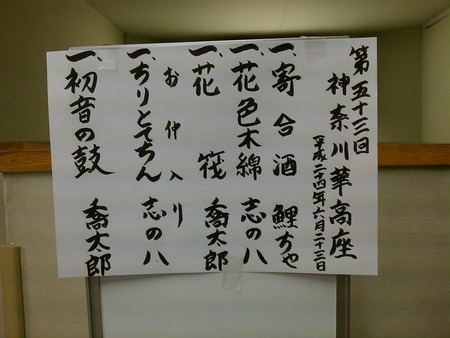 第五十三回
神奈川華高座
(平成二十四年六月二十三日
一、寄合酒 鯉ちゃ
一、花色木綿 志の八
一、花筏 喬太郎
お仲入り
一、ちりとてちん 志の八
一、初音の鼓 喬太郎